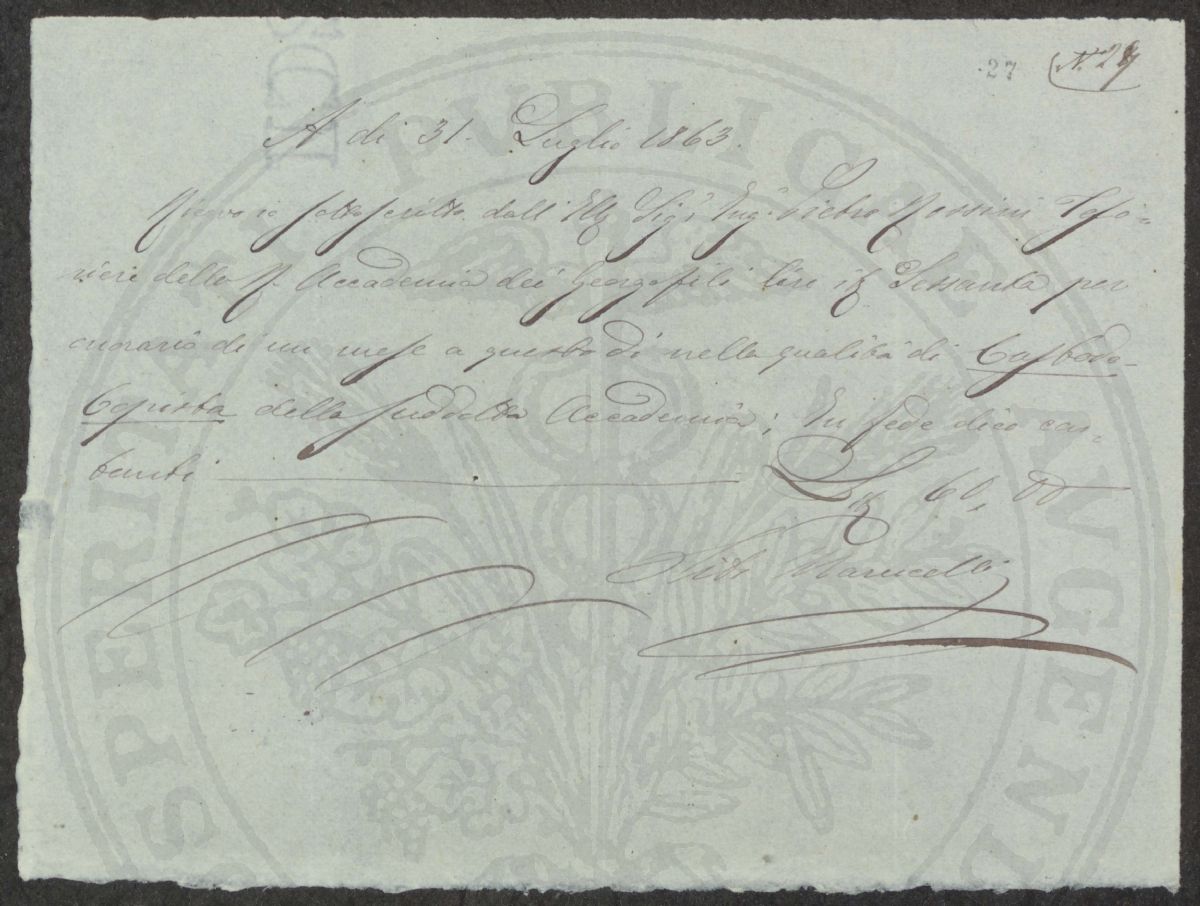 27 N. 27
A di 31. Luglio 1863.
Ricevo io sottoscritto dall' Ill. Sig. Ing. Pietro Rossini Teso-
riere della R. Accademia dei Georgofili lire it. Sessanta per
onorario di un mese a questo dì nella qualità di Custode
Copista della suddetta Accademia; In fede dico con-
tanti L. it. 60, 00
Marucelli
PROSPERITATI PVBLICAE AVGENDAE